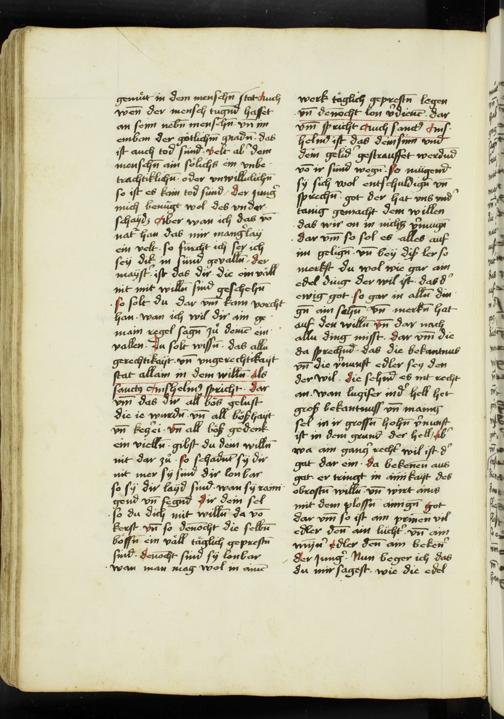 gemüt in dem menschen stat Auch
wen der mensch tugnd hasset
an seim nebn menschn vn im
ist auch tod sünd velt als dem
menschen ain solichs ein vnbe
trachtiklichn oder vnwillüclichn
so ist es kain tod sünd der jung
mich benügt wol des vnder
schayds Aber wan ich das vō
natr han das mir manigfay
ein velt so fürcht ich sey ich
sey dik in sünd gevalln der
mayst ist das dir die ein väll
nit mit willn sind geschehn
so solt du dar vm kain vorcht
han wan ich wil dir ain ge
main regel sagn zu deine ein
vallen Du solt wissn das alli
gerechtikayt vn vngerechtikayt
stat allain in dem willn Als
sanctus Anshelmus spricht dar
vm das dir all bös gelüst
die ie wurdn vn all boßhayt
vn keczei vn all böß gedenk
ein vielln gibst du dem willn
nit dar zu so schadnt sy dir
nit mer sy sind dir lonbar
so sy dir layd sind wan sy raini
gend vn fegnd dir dein sel
so du dich mit willn da vō
kerst vn so dennocht die selbn
bössn ein väll täglich geprestn
sind dennocht sind sy lonbar
wan man mag wol in aine
werk täglich geprestn legen
vn dennocht lon verdienen dar
vm spricht Auch sanctus Ans
helmus ist das dein sinn vnd
dein gelid gestrasset werdnd
vō ir sünd wegn so mügent
sy sich wol entschuldign vn
sprechn got der hat vns vnd
tänig gemacht dem willen
das wir on in nichts vermügn
dar vm so sol es alles auf
im gelign vn bey diß ler so
merkst du wol wie gar ain
edel ding der wil ist das d
ewig got so gar in alln din
gn ain sehn vn merkn hat
auf den willn vn dar nach
alli ding misst dar vm die
da sprechnd das die bekantnus
vn die vernunft edler sey den
der wil die sehnd es nit recht
an wan lucifer ind hell het
groß bekantnuss vn manig
sel in ir grossn hohn vernunft
ist in dem grund der hell Ab
wa ain ganz recht wil ist d
gat dar ein da bekenen aus
gat er tringt in ainikayt des
obrostn willn vn wirt ains
mit dem plossn ainign got
dar vm so ist ain prinen vil
edler den ain liecht vn ain
minn edler den ain bekene
der Jung Nun beger ich das
du mir sagest wie die edel